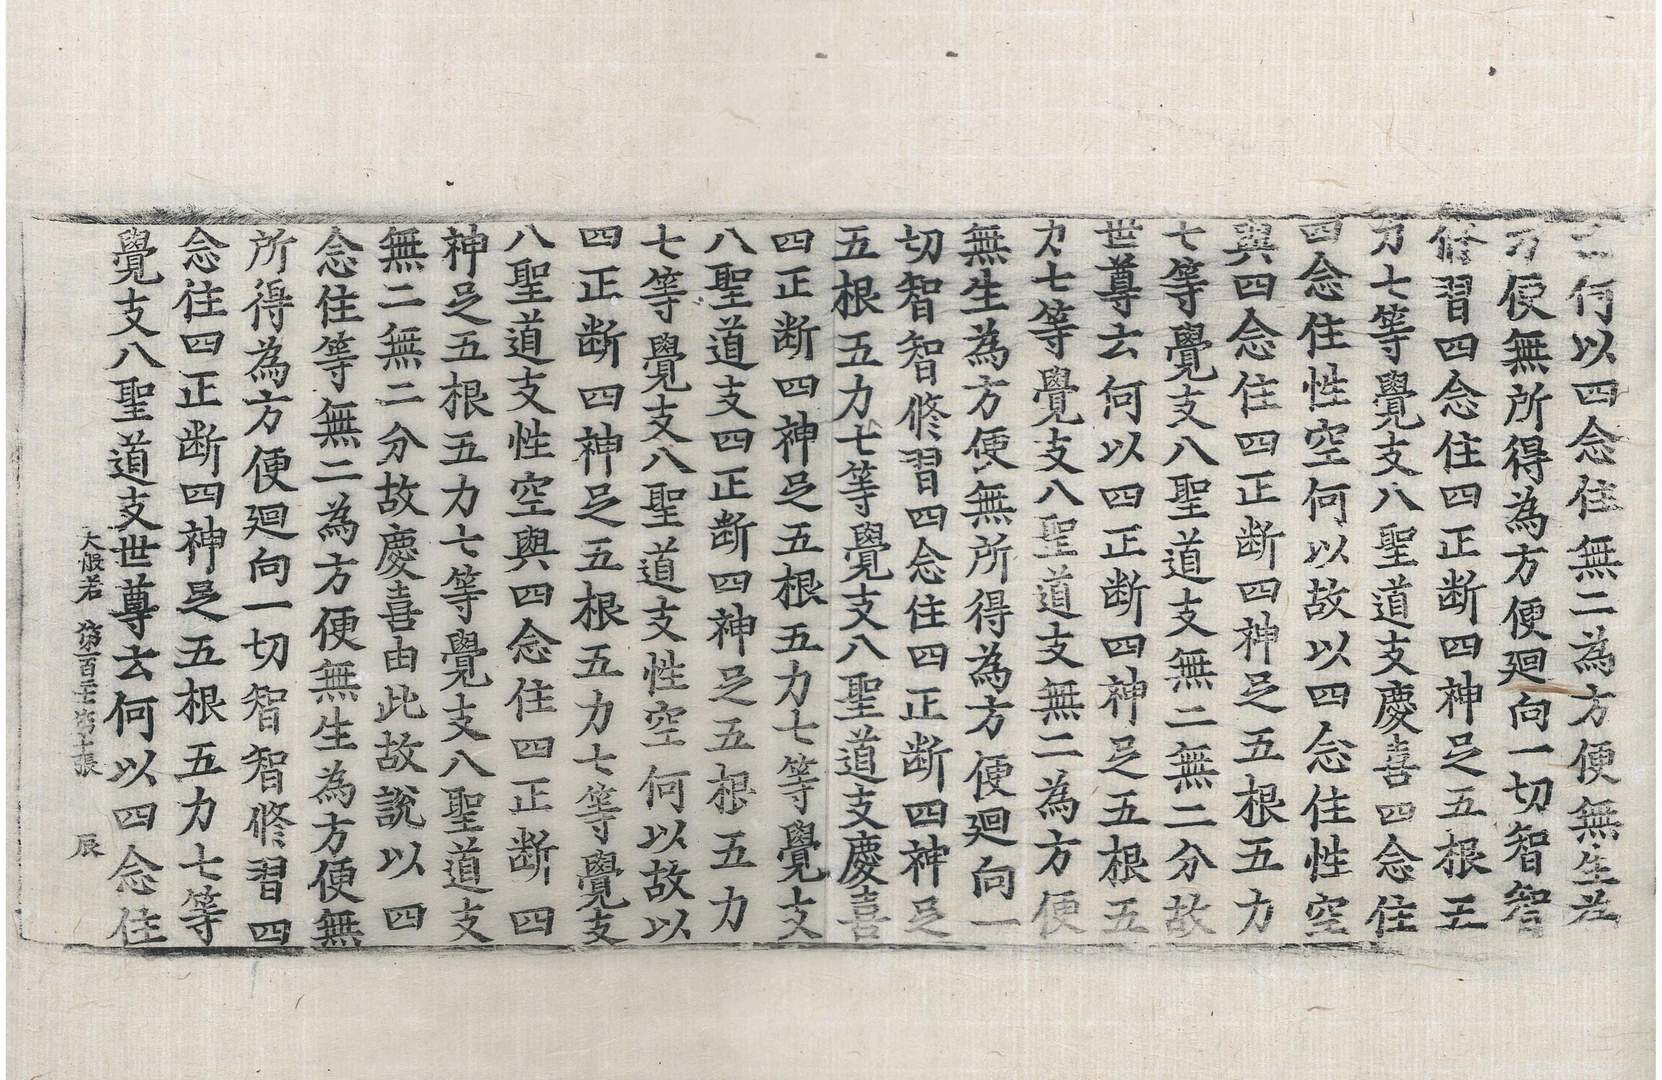 云何以四念住無二為方便無生為
方便無所得為方便廻向一切智智
修習四念住四正断四神足五根五
力七等覺支八聖道支慶喜四念住
四念住性空何以故以四念住性空
與四念住四正断四神足五根五力
七等覺支八聖道支無二無二分故
世尊云何以四正断四神足五根五
力七等覺支八聖道支無二為方便
無生為方便無所得為方便廻向一
切智智修習四念住四正断四神足
五根五力七等覺支八聖道支慶喜
四正断四神足五根五力七等覺支
八聖道支四正断四神足五根五力
七等覺支八聖道支性空何以故以
四正断四神足五根五力七等覺支
八聖道支性空與四念住四正断四
神足五根五力七等覺支八聖道支
無二無二分故慶喜由此故說以四
念住等無二為方便無生為方便無
所得為方便廻向一切智智修習四
念住四正断四神足五根五力七等
覺支八聖道支世尊云何以四念住
大般若 第百 第 張 辰